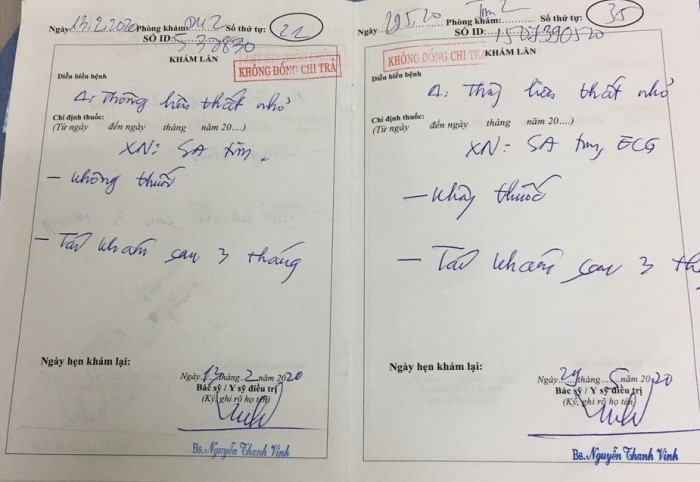 Ngày 13.2.2020 Phòng khám: Số thứ tự: 21
SỐ ID:
KHÁM LẦN
KHÔNG ĐỒNG CHI TRẢ
Diễn biến bệnh
A: Thông liên thất nhỏ
Chỉ định thuốc:
(Từ ngày đến ngày tháng năm 20....)
XN: SA tim.
- Không thuốc
- Tái khám sau 3 tháng
Ngày hẹn khám lại:
Ngày 13 tháng 2 năm 2020
Bác sỹ / Y sỹ điều trị
(Ký, ghi rõ họ tên)
Bs. Nguyễn Thanh Vinh
Ngày Phòng khám: Tim 2 Số thứ tự: 35
SỐ ID:
KHÔNG ĐỒNG CHI TRẢ
KHÁM LẦN
Diễn biến bệnh
A: Thg liên thất nhỏ
Chỉ định thuốc:
(Từ ngày đến ngày tháng năm 20....)
XN: SA tim, ECG
- Khg thuốc
- Tái khám sau 3
Ngày hẹn khám lại:
Ngày 29 tháng 5 năm 2020
Bác sỹ / Y sỹ điều trị
(Ký, ghi rõ họ tên)
Bs. Nguyễn Thanh Vinh